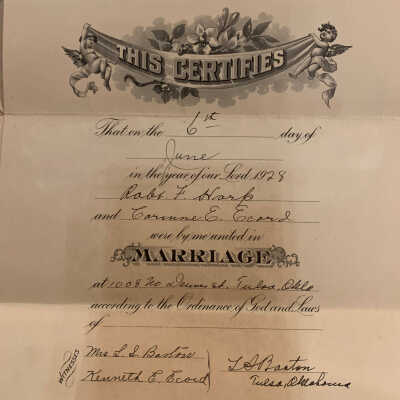 THIS CERTIFIES
That on the 6st day of
June
in the year of our Lord 1928
Robt F. Harp
and Corinne E. Ecord
were by me united in
MARRIAGE
at 1008 No Denver st. Tulsa, Okla
according to the Ordinance of God and Laws
of
WITNESSES
Mrs L S Barton
Kenneth E. Ecord
L S Barton
Tulsa, Oklahoma